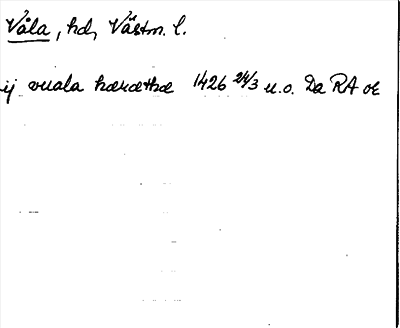 Våla, hd, Västm. l.
ij vuala hæræthæ 1426 24/3 u.o. Da RA or